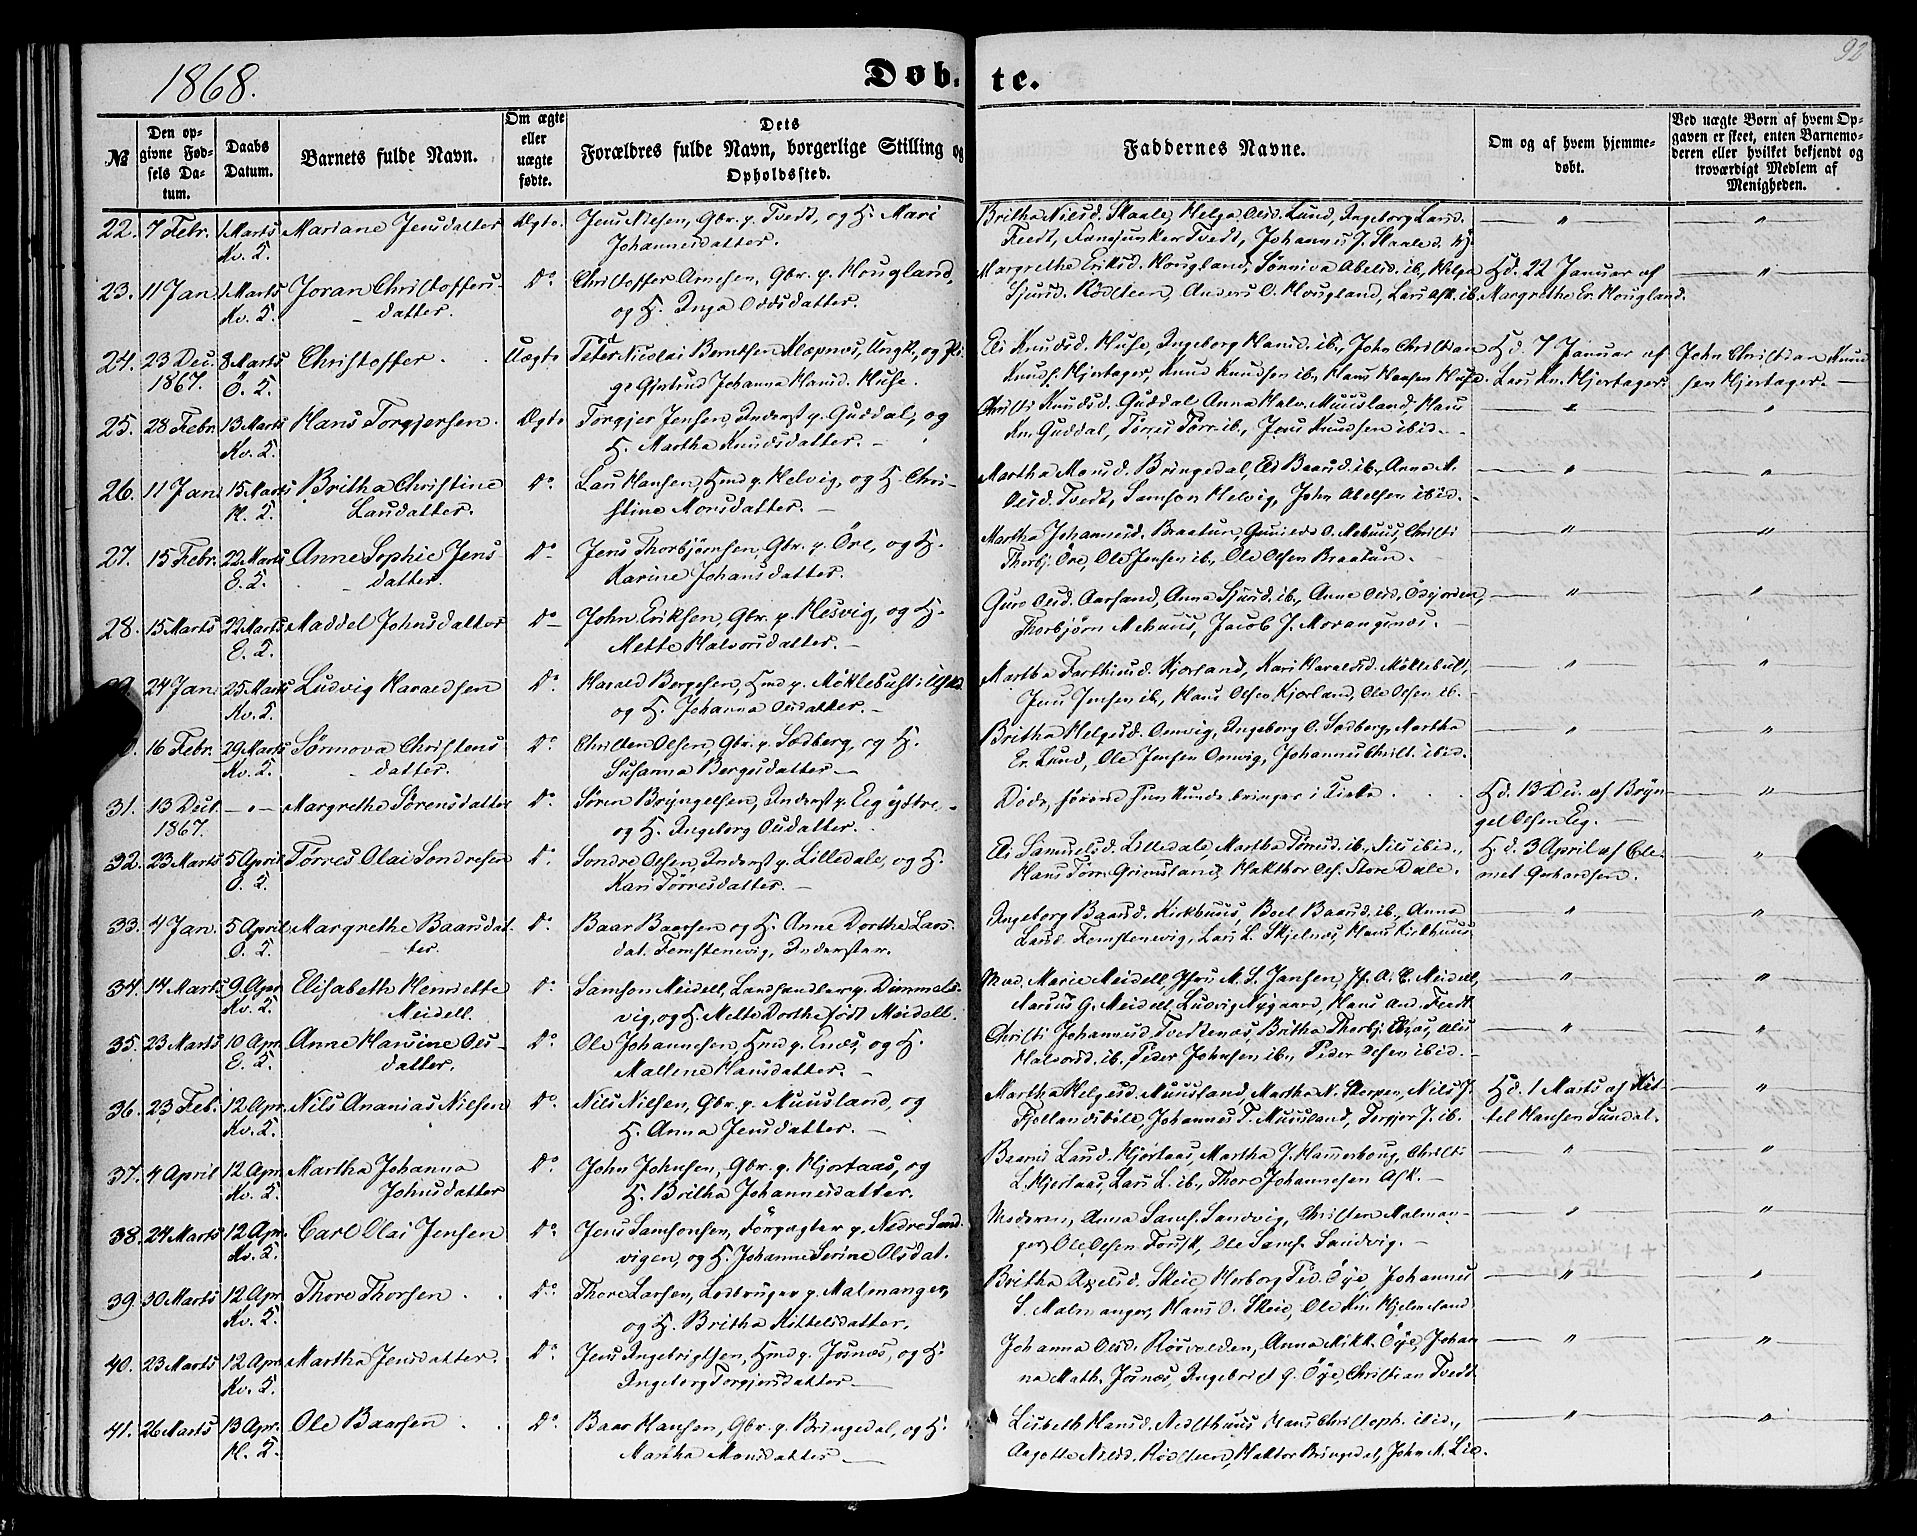 1868.
Døb-
te.
92
№
Den op-
givne Fød-
sels Da-
tum.
Daabs
Datum.
Barnets fulde Navn.
Om ægte
eller
uægte
fødte.
Dets
Forældres fulde Navn, borgerlige Stilling og
Opholdssted.
Faddernes Navne.
Om og af hvem hjemme-
døbt.
Ved uægte Børn af hvem Op-
gaven er skeet, enten Barnemo-
deren eller hvilket bekjendt og
troværdigt Medlem af
Menigheden.
22. 7 Febr. 1 Marts Mariane Jensdatter Ægte Jens Nielsen, Gbr. p. Tvedt, og H. Mari
Kv. S. Johannesdatter.
Britha Nilsd. Skaale, Helga Olsd. Lund, Ingeborg Larsd.
Tvedt, Johannes J. Skaale
23. 11 Jan. 1 Marts Joran Christoffers- Do Christoffer Arnesen, Gbr. p. Hougland,
Kv. S. datter. og H. Inga Oddsdatter.
Margrethe Eriksd. Hougland, Sønniva Abelsd. ib., Helga Hd. 22 Januar af
Sjursd. Rødsteen, Anders O. Hougland, Lars Ask. ib. Margrethe Er. Hougland.
24. 23 Dec. 8 Marts Christoffer. Uægte Peter Nicolai Berntsen Klæpnæs, Ungk., og Pi-
1867. Ö. S. ge Gjertrud Johanna Hansd. Huse.
Eli Knudsd. Huse, Ingeborg Hansd. ib., John Christian Hd. 7 Januar af John Christian Knud-
Knuds. Hjertager, Knud Knudsen ib., Hans Hansen Huse. Lars Kn. Hjertager. sen Hjertager.
25. 28 Febr. 13 Marts Hans Torgjersen. Ægte Torgjer Jensen, Inderst p. Guddal, og
Kv. S. H. Martha Knudsdatter.
Christi Knudsd. Guddal, Anna Halv. Muusland, Hans
Kn. Guddal, Tørres Tørr. ib., Jens Knudsen ibid.
26. 11 Jan. 15 Marts Britha Christine Do Lars Hansen, Hmd p. Helvig, og H. Chri-
H. S. Larsdatter. stine Monsdatter.
Martha Monsd. Bringedal, Eli Baarsd. ib., Anna M.
Olsd. Tvedt, Samson Helvig, John Abelsen ibid.
27. 15 Febr. 22 Marts Anne Sophie Jens- Do Jens Thorbjørnsen, Gbr. p. Öre, og H.
E. S. datter. Karine Johansdatter.
Martha Johannesd. Braatun, Gunild O. Mehuus, Christi
Thorbj. Öre, Ole Jensen ib., Ole Olsen Braatun.
28. 15 Marts 22 Marts Maddel Johnsdatter Do John Eriksen, Gbr. p. Hesvig, og H.
E. S. Mette Halvorsdatter.
Guro Olsd. Aarsand, Anna Sjursd. ib., Anne Olsd.
Thorbjørn Mehuus, Jacob J. Morangsnæs.
24 Jan. 25 Marts Ludvig Haraldsen Do Harald Børgesen, Hmd p. Möklebust i
Kv. S. og H. Johanna Olsdatter.
Martha Farthinsd. Kjerland, Kari Haraldsd. Möklebust,
Jens Jensen ib., Hans Olsen Kjerland, Ole Olsen ib.
16 Febr. 29 Marts Sønnova Christens- Do Christen Olsen, Gbr. p. Solberg, og H.
Kv. S. datter. Susanna Børgesdatter
Britha Helgesd. Omvig, Ingeborg O. Solberg, Martha
Er. Lund, Ole Jensen Omvig, Johannes Christ. ibid.
31. 13 Decb. Margrethe Sørensdatter Do Søren Bryngelsen, Inderst p. Eeg ÿttre,
1867. og H. Ingeborg Olsdatter.
Døde, førend hun kunde bringes i Kirke Hd. 13 Dec. af Bryn-
gel Olsen Eeg.
32. 23 Marts 5 April Tørres Olai Sondresen Do Sondre Olsen, Inderst p. Lilledale, og H.
Ö. S. Kari Tørresdatter.
Eli Samuelsd. Lilledale, Martha Tørresd. ib., Nils ibid., Hd. 3 April af Cle-
Hans Tørr. Grimsland, Hakthor Ols. Store Dale. met Gerhardsen.
33. 4 Jan. 5 April Margrethe Baarsdat- Do Baar Baarsen og H. Anne Dorthe Lars-
Ö. S. ter. dat. Femstenevig, Inderster.
Ingeborg Baarsd. Kirkhuus, Boel Baarsd. ib., Anna
Larsd. Femstenevig, Lars L. Skjelnæs, Hans Kirkhuus
34. 14 Marts 9 Apr. Elisabeth Henriette Do Samson Meidell, Landhandler p. Dimmels-
Kv. S. Meidell. vig, og H. Mette Dorthe født Meidell.
Mad. Marie Meidell, Jfru M. S. Jansen, Jf. A. E. Meidell,
G. Meidell, Ludvig Nygaard, Hans And. Tvedt
35. 23 Marts 10 Apr. Anne Hansine Ols- Do Ole Johannesen, Hmd p. Enes, og H.
E. S. datter. Mallene Hansdatter.
Christi Johannesd. Tvedtenæs, Britha Thorbj.
Halvorsd. ib., Peder Johnsen ib., Peder Olsen ibid.
36. 23 Feb. 12 Apr. Nils Ananias Nilsen Do Nils Nilsen, Gbr. p. Muusland, og
Kv. S. H. Anna Jensdatter.
Martha Helgesd. Muusland, Martha N. Skorpen, Nils J. Hd. 1 Marts af Kit-
Fjellandsbøle, Johannes T. Muusland, Torgjer J. ib. tel Hansen Sundal.
37. 4 April 12 Apr. Martha Johanna Do John Johnsen, Gbr. p. Hjortaas, og
Kv. S. Johnsdatter H. Britha Johannesdatter.
Larsd. Hjortaas, Martha J. Hammerhoug, Christi
L. Hjortaas, Lars L. ib., Thore Johannesen Ask.
38. 24 Marts 12 Apr. Carl Olai Jensen Do Jens Samsonsen, Forpagter p. Nedre Sand-
Kv. S. vigen, og H. Johanne Serine Olsdat.
Moderen, Anna Sams. Sandvig, Christen Malman-
ger, Ole Olsen Torsk, Ole Sams. Sandvig.
39. 30 Marts 12 Apr. Thore Thorsen Do Thore Larsen, Ledbruger p. Malmanger,
Kv. S. og H. Britha Kittelsdatter.
Britha Axelsd. Skeie, Herborg Ped. Öye, Johannes
S. Malmanger, Hans O. Skeie, Ole Kn. Hjelmeland
40. 23 Marts 12 Apr. Martha Jensdatter. Do Jens Ingebrigtsen, Hmd p. Jøsnæs, og H.
Kv. S. Ingeborg Torgjersdatter
Johanna Olsd. Røsvolden, Anna Mikk. Öye, Johan-
na Math. Jøsnæs, Ingebrigt G. Öye, Christian Tvedt
41. 26 Marts 13 Apr. Ole Baarsen Do Baar Hansen, Gbr. p. Bringedal, og H.
H. S. Martha Monsdatter
Lisbeth Hansd. Nedsthuus, Hans Christoph. ibid.,
Aagotte Nilsd. Rødsteen, Haktor Bringedal, John M. Lie.